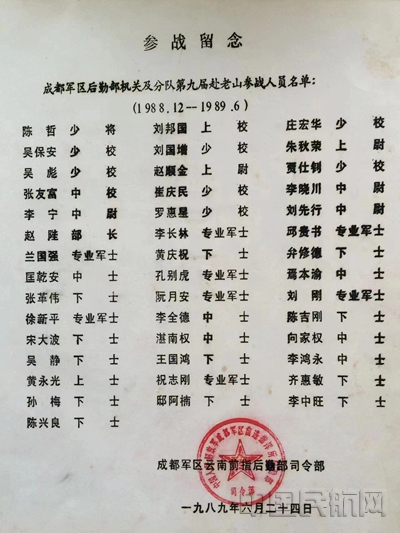 参战留念
成都军区后勤部机关及分队第九届赴老山参战人员名单：
(1988.12—1989.6)
陈哲 少将 刘邦国 上校 庄宏华 少校
吴保安 少校 刘国增 少校 朱秋荣 上尉
吴彪 少校 赵顺金 上尉 贾仕钊 少校
张友富 中校 崔庆民 少校 李晓川 中尉
李宁 中尉 罗惠星 少校 刘先行 中尉
赵陞 部长 李长林 专业军士 邱贵书 专业军士
兰国强 专业军士 黄庆祝 下士 弁修德 下士
匡乾安 中士 孔别虎 专业军士 焉本渝 中士
张革伟 下士 阮月安 专业军士 刘刚 专业军士
徐新平 专业军士 李全德 中士 陈吉刚 下士
宋大波 下士 湛南权 中士 向家权 中士
吴静 下士 王国鸿 下士 李鸿永 中士
黄永光 上士 祝志刚 专业军士 齐惠敏 下士
孙梅 下士 邸阿楠 下士 李中旺 下士
陈兴良 下士
成都军区云南前指后勤部司令部
司令部
一九八九年六月二十四日
中国民航网